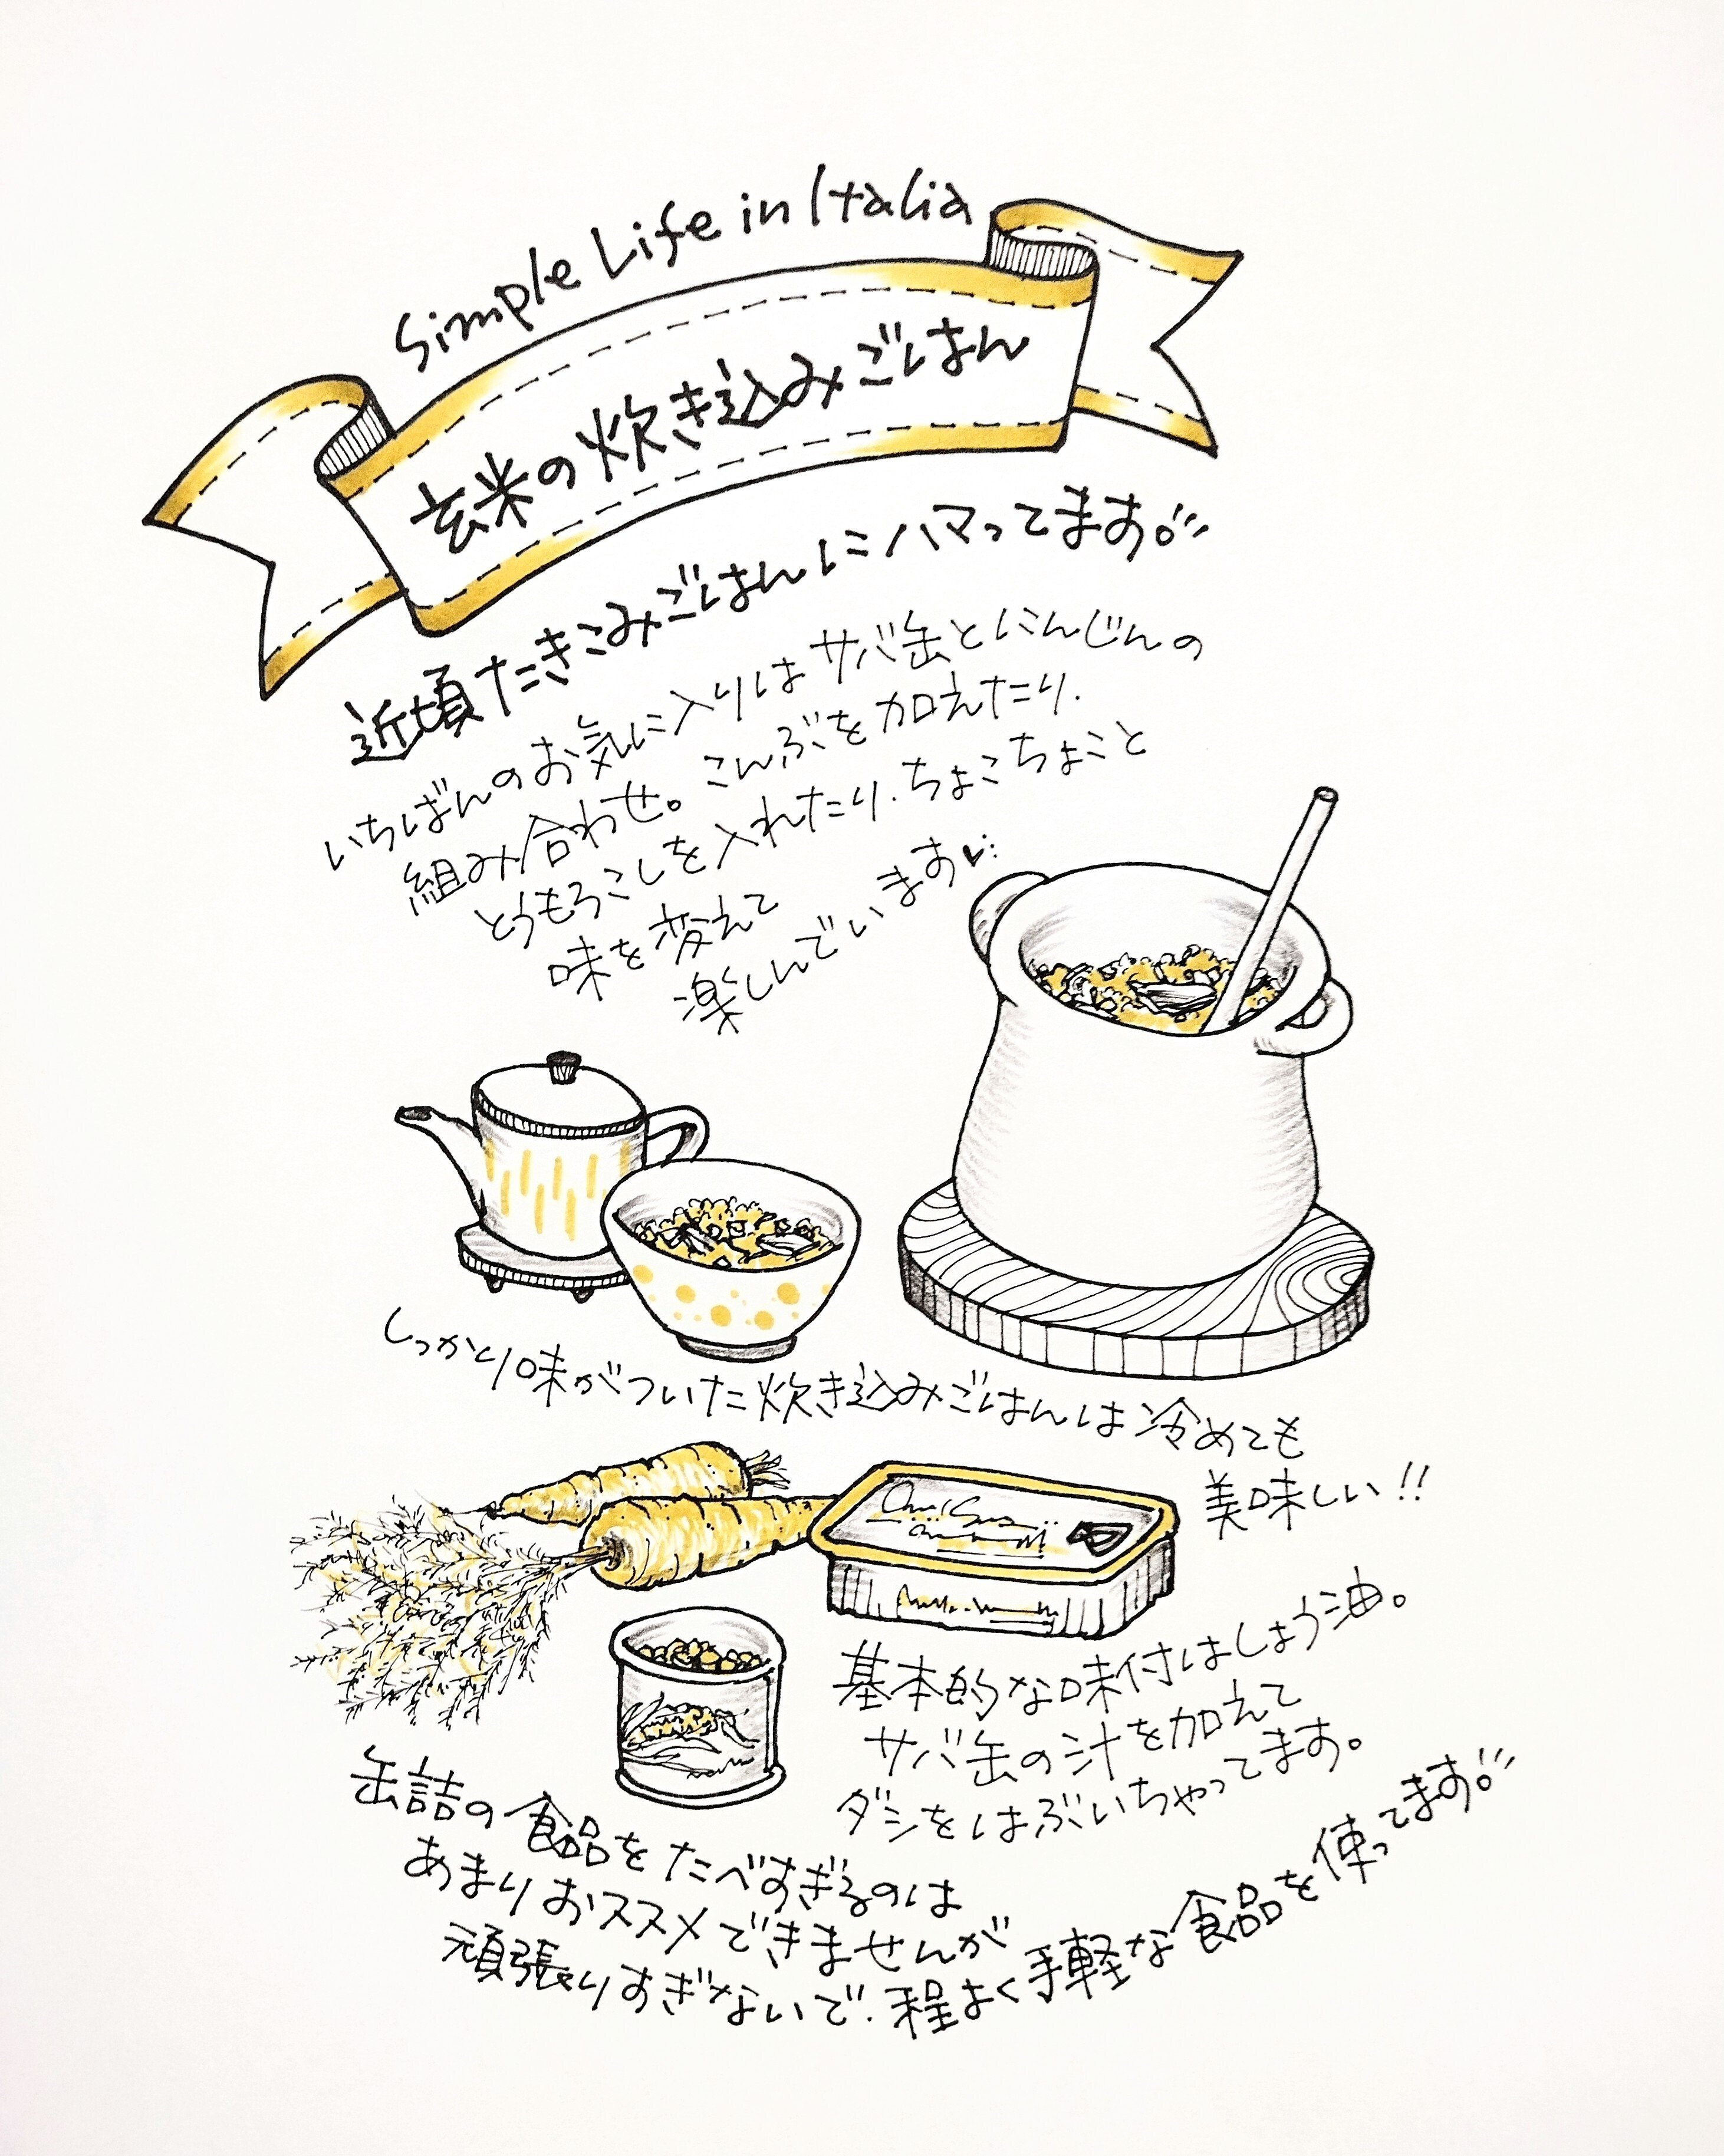 Simple Life in Italia
玄米の炊き込みごはん
近頃たきこみごはんにハマってます。
いちばんのお気に入りはサバ缶とにんじんの
組み合わせ。こんぶを加えたり.
とうもろこしを入れたり.ちょこちょこと
味を変えて
楽しんでいます♥
しっかり味がついた炊き込みごはんは冷めても
美味しい!!
基本的な味付はしょう油。
サバ缶の汁を加えて
ダシをはぶいちゃってます。
缶詰の食品をたべすぎるのは
あまりおススメできませんが
頑張りすぎないで.程よく手軽な食品を使ってます。